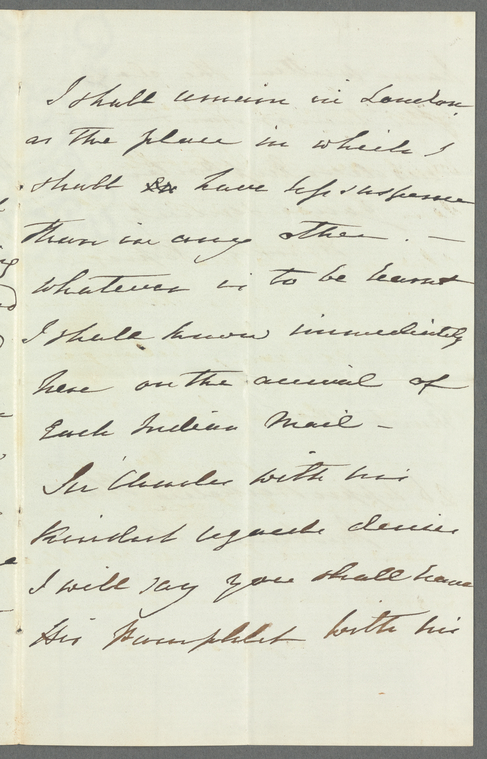 I shall remain in London
as the place in which I
shall have less suspense
than in any other. —
whatever is to be learnt
I shall know immediately
here on the arrival of
Each Indian Mail —
Sir Charles with his
kindest regards desires
I will say you shall have
His Pamphlet with his